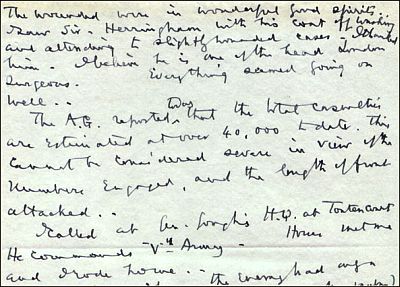 The wounded were in wonderful good spirits.
I saw Sir. Herringham with his coat off working
and attending to slightly wounded cases - I thanked
him. I believe he is one of the head London
Surgeons. Everything seemed going on
well..
The A.G. reported today that the total casualties
are estimated at over 40,000 to date. This
cannot be considered severe in view of the
numbers engaged, and the length of front
attacked..
I called at Gn. Gough's H.Q. at Toutencourt
He commands "Vth Army - Horses met me
and I rode home.. - the enemy had